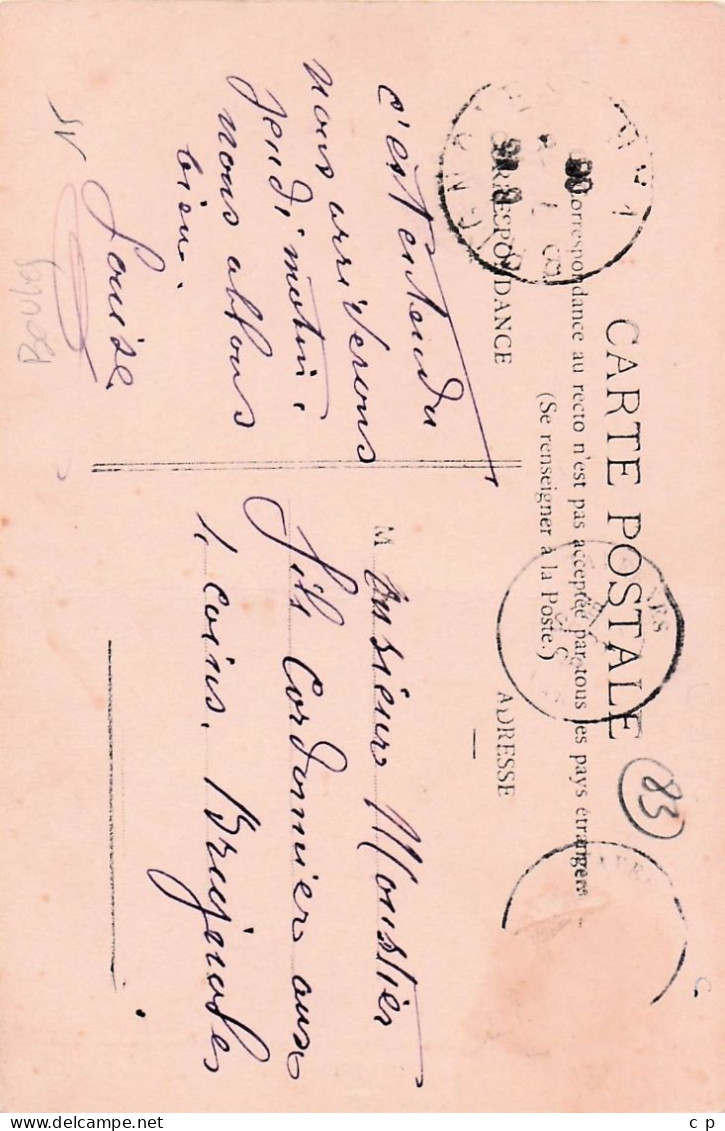 CARTE POSTALE
La Correspondance au recto n'est pas acceptée par tous les pays étrangers
(Se renseigner à la Poste.)
CORRESPONDANCE
c'est entendu
nous arriverons
jeudi matin.
nous allons
bien.
Louise
ADRESSE
Monsieur Moustier
fils Cordonnier aux
4 coins. Brignoles
83